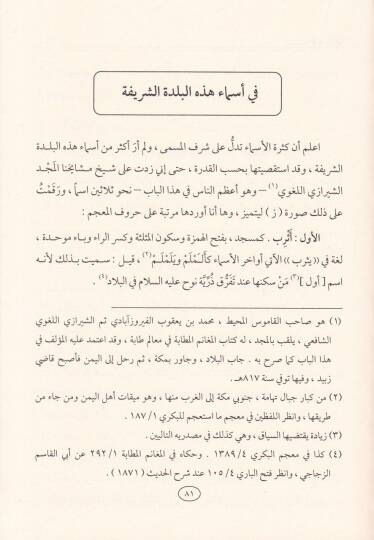 في أسماء هذه البلدة الشريفة
اعلم أن كثرة الأسماء تدلُّ على شرف المسمى ، ولم أرَ أكثر من أسماء هذه البلدة
الشريفة ، وقد استقصيتها بحسب القدرة ، حتى إني زدت على شيخ مشايخنا المَجْد
الشيرازي اللغوي(١) – وهو أعظم الناس في هذا الباب – نحو ثلاثين اسماً ، ورقَمْتُ
على ذلك صورة ( ز ) ليتميز ، وها أنا أوردها مرتبة على حروف المعجم :
الأول : أَثْرِب . كمسجد ، بفتح الهمزة وسكون المثلثة وكسر الراء وباء موحدة ،
لغة في «يثرب» الآتي أواخر الأسماء كأَلَمْلَمْ ويَلَمْلَمْ(٢) ، قيل : سميت بذلك لأنه
اسم [ أول ](٣) مَنْ سكنها عند تَفَرُّق ذُرِّيَّة نوح عليه السلام في البلاد(٤) .
(١) هو صاحب القاموس المحيط ، محمد بن يعقوب الفيروزآبادي ثم الشيرازي اللغوي
الشافعي ، يلقب بالمجد ، له كتاب المغانم المطابة في معالم طابة ، وقد اعتمد عليه المؤلف في
هذا الباب كما صرح به . جاب البلاد ، وجاور بمكة ، ثم رحل إلى اليمن فأصبح قاضي
زبيد ، وفيها توفي سنة ٨١٧هـ .
(٢) من كبار جبال تهامة ، جنوبي مكة إلى الغرب منها ، وهو ميقات أهل اليمن ومن جاء من
طريقها ، وانظر اللفظين في معجم ما استعجم للبكري ١/ ١٨٧ .
(٣) زيادة يقتضيها السياق ، وهي كذلك في مصدريه التاليين .
(٤) كذا في معجم البكري ٤/ ١٣٨٩ . وحكاه في المغانم المطابة ١/ ٢٩٢ عن أبي القاسم
الزجاجي ، وانظر فتح الباري ٤/ ١٠٥ عند شرح الحديث ( ١٨٧١ ) .
٨١